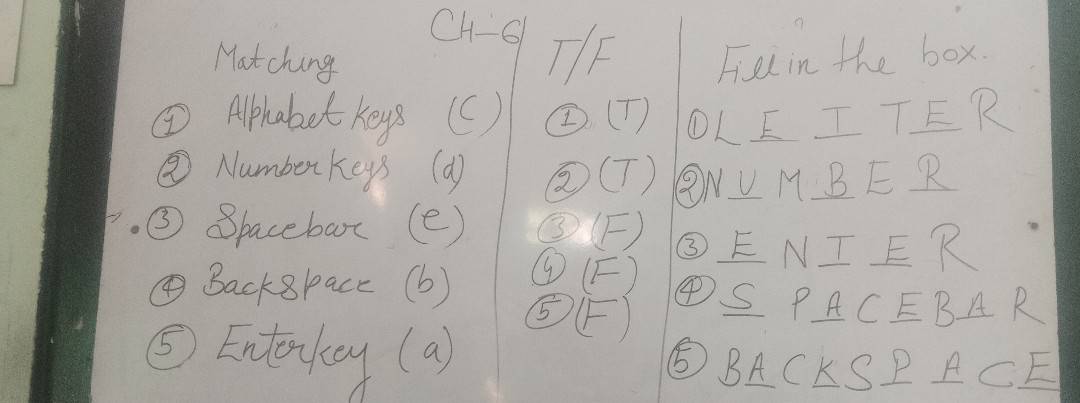 CH-6
Matching
① Alphabet keys (C)
② Number keys (d)
③ Spacebar (e)
④ Backspace (b)
⑤ Enterkey (a)
T/F
① (T)
② (T)
③ (F)
④ (F)
⑤ (F)
Fill in the box.
① L E T T E R
② N U M B E R
③ E N T E R
④ S P A C E B A R
⑤ B A C K S P A C E